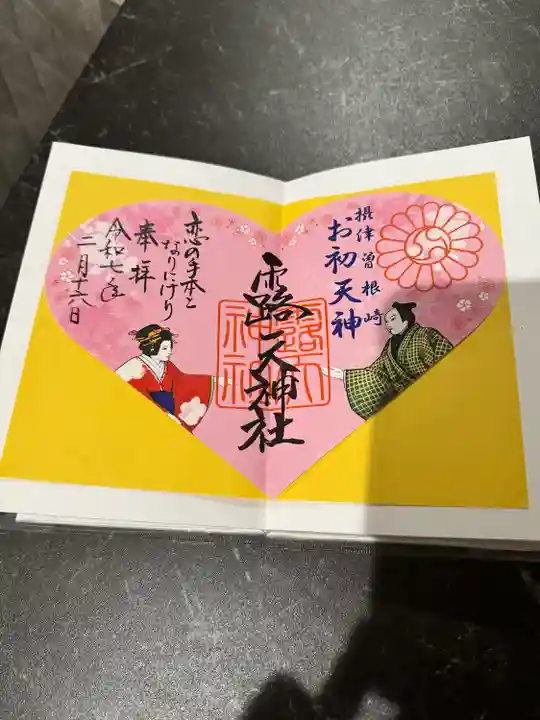 摂津曽根崎
お初天神
露天神社
露天
神社
恋の手本と
なりにけり
奉拝
令和七年
二月十六日